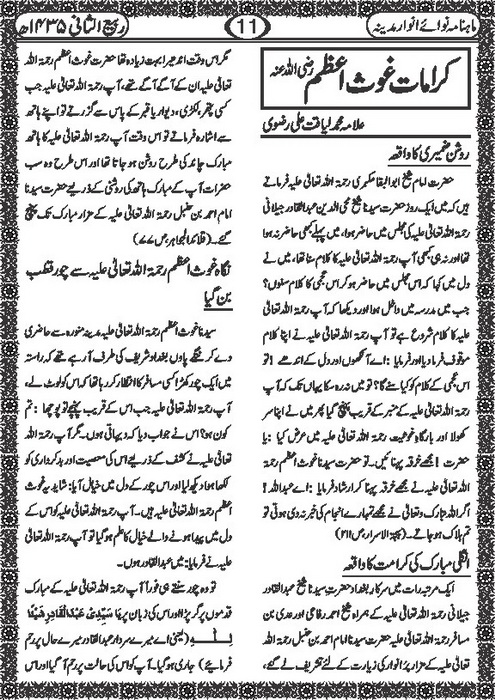 ماہنامہ نوائے انوار مدینہ
11
ربیع الثانی ۱۴۳۵ھ
کرامات غوث اعظم رضی اللہ عنہ
علامہ محمد لیاقت علی رضوی
روشن ضمیری کا واقعہ
حضرت امام شیخ ابوالبقا مکبری رحمۃ اللہ تعالیٰ علیہ فرماتے
ہیں کہ میں ایک روز حضرت سیدنا شیخ محی الدین عبدالقادر جیلانی
رحمۃ اللہ تعالیٰ علیہ کی مجلس میں حاضر ہوا، میں پہلے کبھی حاضر نہ ہوا
تھا اور نہ ہی کبھی آپ رحمۃ اللہ تعالیٰ علیہ کا کلام سنا تھا، میں نے
دل میں کہا کہ اس مجلس میں حاضر ہو کر اس عجمی کا کلام سنوں؟
جب میں مدرسہ میں داخل ہوا اور دیکھا کہ آپ رحمۃ اللہ تعالیٰ
علیہ کا کلام شروع ہے تو آپ رحمۃ اللہ تعالیٰ علیہ نے اپنا کلام
موقوف فرما دیا اور فرمایا : اے آنکھوں اور دل کے اندھے ! تو
اس عجمی کے کلام کو کیا سنے گا؟ تو میں نہ رہ سکا یہاں تک کہ آپ
رحمۃ اللہ تعالیٰ علیہ کے منبر کے قریب پہنچ گیا پھر میں نے اپنا سر
کھولا اور بارگاہ غوثیت رحمۃ اللہ تعالیٰ علیہ میں عرض کیا : یا
حضرت ! مجھے خرقہ پہنائیں۔ تو حضرت سیدنا غوث اعظم رحمۃ
اللہ تعالیٰ علیہ نے مجھے خرقہ پہنا کر ارشاد فرمایا : اے عبداللہ !
اگر اللہ تبارک و تعالیٰ نے مجھے تمہارے انجام کی خبر نہ دی ہوتی تو
تم ہلاک ہو جاتے۔ (بہجۃ الاسرار، ص ۲۱۱)
انگلی مبارک کی کرامت کا واقعہ
ایک مرتبہ رات میں سرکار بغداد حضرت سیدنا شیخ عبدالقادر
جیلانی رحمۃ اللہ تعالیٰ علیہ کے ہمراہ شیخ احمد رفاعی اور عدی بن
مسافر رحمۃ اللہ تعالیٰ علیہ حضرت سیدنا امام احمد بن حنبل رحمۃ اللہ
تعالیٰ علیہ کے مزار پر انوار کی زیارت کے لئے تشریف لے گئے،
مگر اس وقت اندھیرا بہت زیادہ تھا حضرت غوث اعظم رحمۃ اللہ
تعالیٰ علیہ ان کے آگے آگے تھے، آپ رحمۃ اللہ تعالیٰ علیہ جب
کسی پتھر، لکڑی، دیوار یا قبر کے پاس سے گزرتے تو اپنے ہاتھ
سے اشارہ فرماتے تو اس وقت آپ رحمۃ اللہ تعالیٰ علیہ کا ہاتھ
مبارک چاند کی طرح روشن ہو جاتا تھا اور اس طرح وہ سب
حضرات آپ کے مبارک ہاتھ کی روشنی کے ذریعے حضرت سیدنا
امام احمد بن حنبل رحمۃ اللہ تعالیٰ علیہ کے مزار مبارک تک پہنچ
گئے۔ (قلائد الجواہر، ص ۷۷)
نگاہ غوث اعظم رحمۃ اللہ تعالیٰ علیہ سے چور قطب
بن گیا
سیدنا غوث اعظم رحمۃ اللہ تعالیٰ علیہ مدینہ منورہ سے حاضری
دے کر ننگے پاؤں بغداد شریف کی طرف آ رہے تھے کہ راستہ
میں ایک چور کھڑا کسی مسافر کا انتظار کر رہا تھا کہ اس کو لوٹ لے،
آپ رحمۃ اللہ تعالیٰ علیہ جب اس کے قریب پہنچے تو پوچھا : تم
کون ہو؟ اس نے جواب دیا کہ دیہاتی ہوں۔ مگر آپ رحمۃ اللہ
تعالیٰ علیہ نے کشف کے ذریعے اس کی معصیت اور بدکرداری کو
لکھا ہوا دیکھ لیا اور اس چور کے دل میں خیال آیا : شاید یہ غوث
اعظم رحمۃ اللہ تعالیٰ علیہ ہیں۔ آپ رحمۃ اللہ تعالیٰ علیہ کو اس کے
دل میں پیدا ہونے والے خیال کا علم ہو گیا تو آپ رحمۃ اللہ تعالیٰ
علیہ نے فرمایا : میں عبدالقادر ہوں۔
تو وہ چور سنتے ہی فوراً آپ رحمۃ اللہ تعالیٰ علیہ کے مبارک
قدموں پر گر پڑا اور اس کی زبان پر یا سَیِّدِیْ عَبْدَالْقَادِرِ شَیْئًا
لِلّٰہِ (یعنی اے میرے سردار عبدالقادر میرے حال پر رحم
فرمایئے) جاری ہو گیا۔ آپ کو اس کی حالت پر رحم آ گیا اور اس